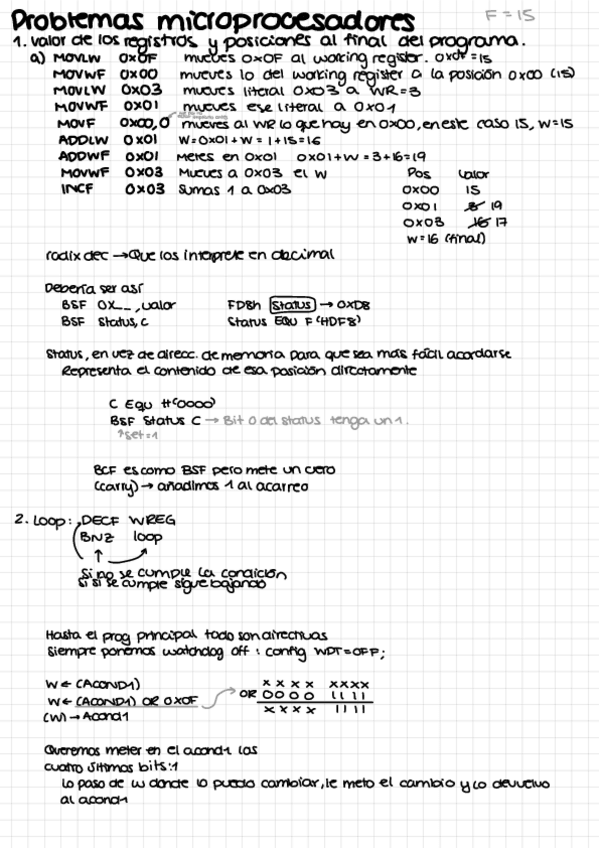 Problemas microprocesadores F = 15
1. valor de los registros y posiciones al final del programa.
a) MOVLW 0x0F mueves 0x0F al working register. 0x0F = 15
MOVWF 0x00 mueves lo del working register a la posición 0x00 (15)
MOVLW 0x03 mueves literal 0x03 a WR=3
MOVWF 0x01 mueves ese literal a 0x01
MOVF 0x00,0 mueves al WR lo que hay en 0x00, en este caso 15, W=15
ADDLW 0x01 W=0x01+W = 1+15=16
ADDWF 0x01 Metes en 0x01 0x01+W = 3+16=19
MOVWF 0x03 Mueves a 0x03 el W Pos Valor
INCF 0x03 Sumas 1 a 0x03 0x00 15
0x01 3 19
0x03 16 17
W=16 (final)
radix dec → Que los interprete en decimal
Debería ser así
BSF 0X__, valor FD8h Status → 0xD8
BSF Status, C Status EQU F(HDF8)
Status, en vez de direcc. de memoria para que sea más fácil acordarse
Representa el contenido de esa posición directamente
C Equ H(0000)
BSF Status C → Bit 0 del status tenga un 1.
↑set=1
BCF es como BSF pero mete un cero
(carry) → añadimos 1 al acarreo
2. Loop: DECF WREG
BNZ loop
↑
Si no se cumple la condición
si si se cumple sigue bajando
Hasta el prog principal todo son directivas
Siempre ponemos watchdog off : config WDT=OFF;
W ← (ACOND1) x x x x x x x x
W ← (ACOND1) OR 0x0F OR 0 0 0 0 1 1 1 1
(W) → Acond1 x x x x 1 1 1 1
Queremos meter en el acond1 los
cuatro últimos bits:1
lo paso de W donde lo puedo cambiar, le meto el cambio y lo devuelvo
al acond1